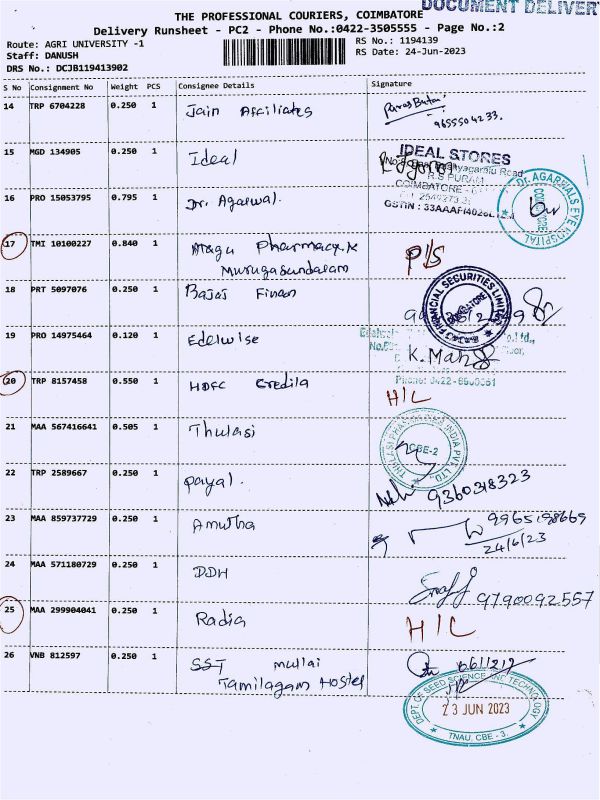 DOCUMENT DELIVER
THE PROFESSIONAL COURIERS, COIMBATORE
Delivery Runsheet - PC2 - Phone No.:0422-3505555 - Page No.:2
Route: AGRI UNIVERSITY -1
RS No.: 1194139
Staff: DANUSH
RS Date: 24-Jun-2023
DRS No.: DCJB119413902
S No Consignment No Weight PCS Consignee Details Signature
14 TRP 6704228 0.250 1 Jain Affiliates
9655504233.
15 MGD 134905 0.250 1 Ideal
IDEAL STORES
R.S PURAM
COIMBATORE
16 PRO 15053795 0.795 1 Dr. Agarwal.
GSTIN : 33AAAFI4026L
Dr. AGARWALS EYE HOSPITAL
COIMBATORE
17 TMI 10100227 0.840 1 Alagu Pharmacy.k
Murugasundaram
P/S
18 PRT 5097076 0.250 1 Bajaj Finan
FINANCIAL SECURITIES LIMITED
19 PRO 14975464 0.120 1 Edelwise
K. Mah
Phone: 0422-
20 TRP 8157458 0.550 1 HDFC Credila
H/C
21 MAA 567416641 0.505 1 Thulasi
THULASI PHARMACIES INDIA PVT. LTD.,
CBE-2
22 TRP 2589667 0.250 1 payal.
9360318323
23 MAA 859737729 0.250 1 Amutha
9965198669
24/6/23
24 MAA 571180729 0.250 1 DDH
9790092557
25 MAA 299904041 0.250 1 Radia
H/C
26 VNB 812597 0.250 1 SST mullai
Tamilagam Hostel
DEPT. OF SEED SCIENCE AND TECHNOLOGY
23 JUN 2023
TNAU, CBE - 3.